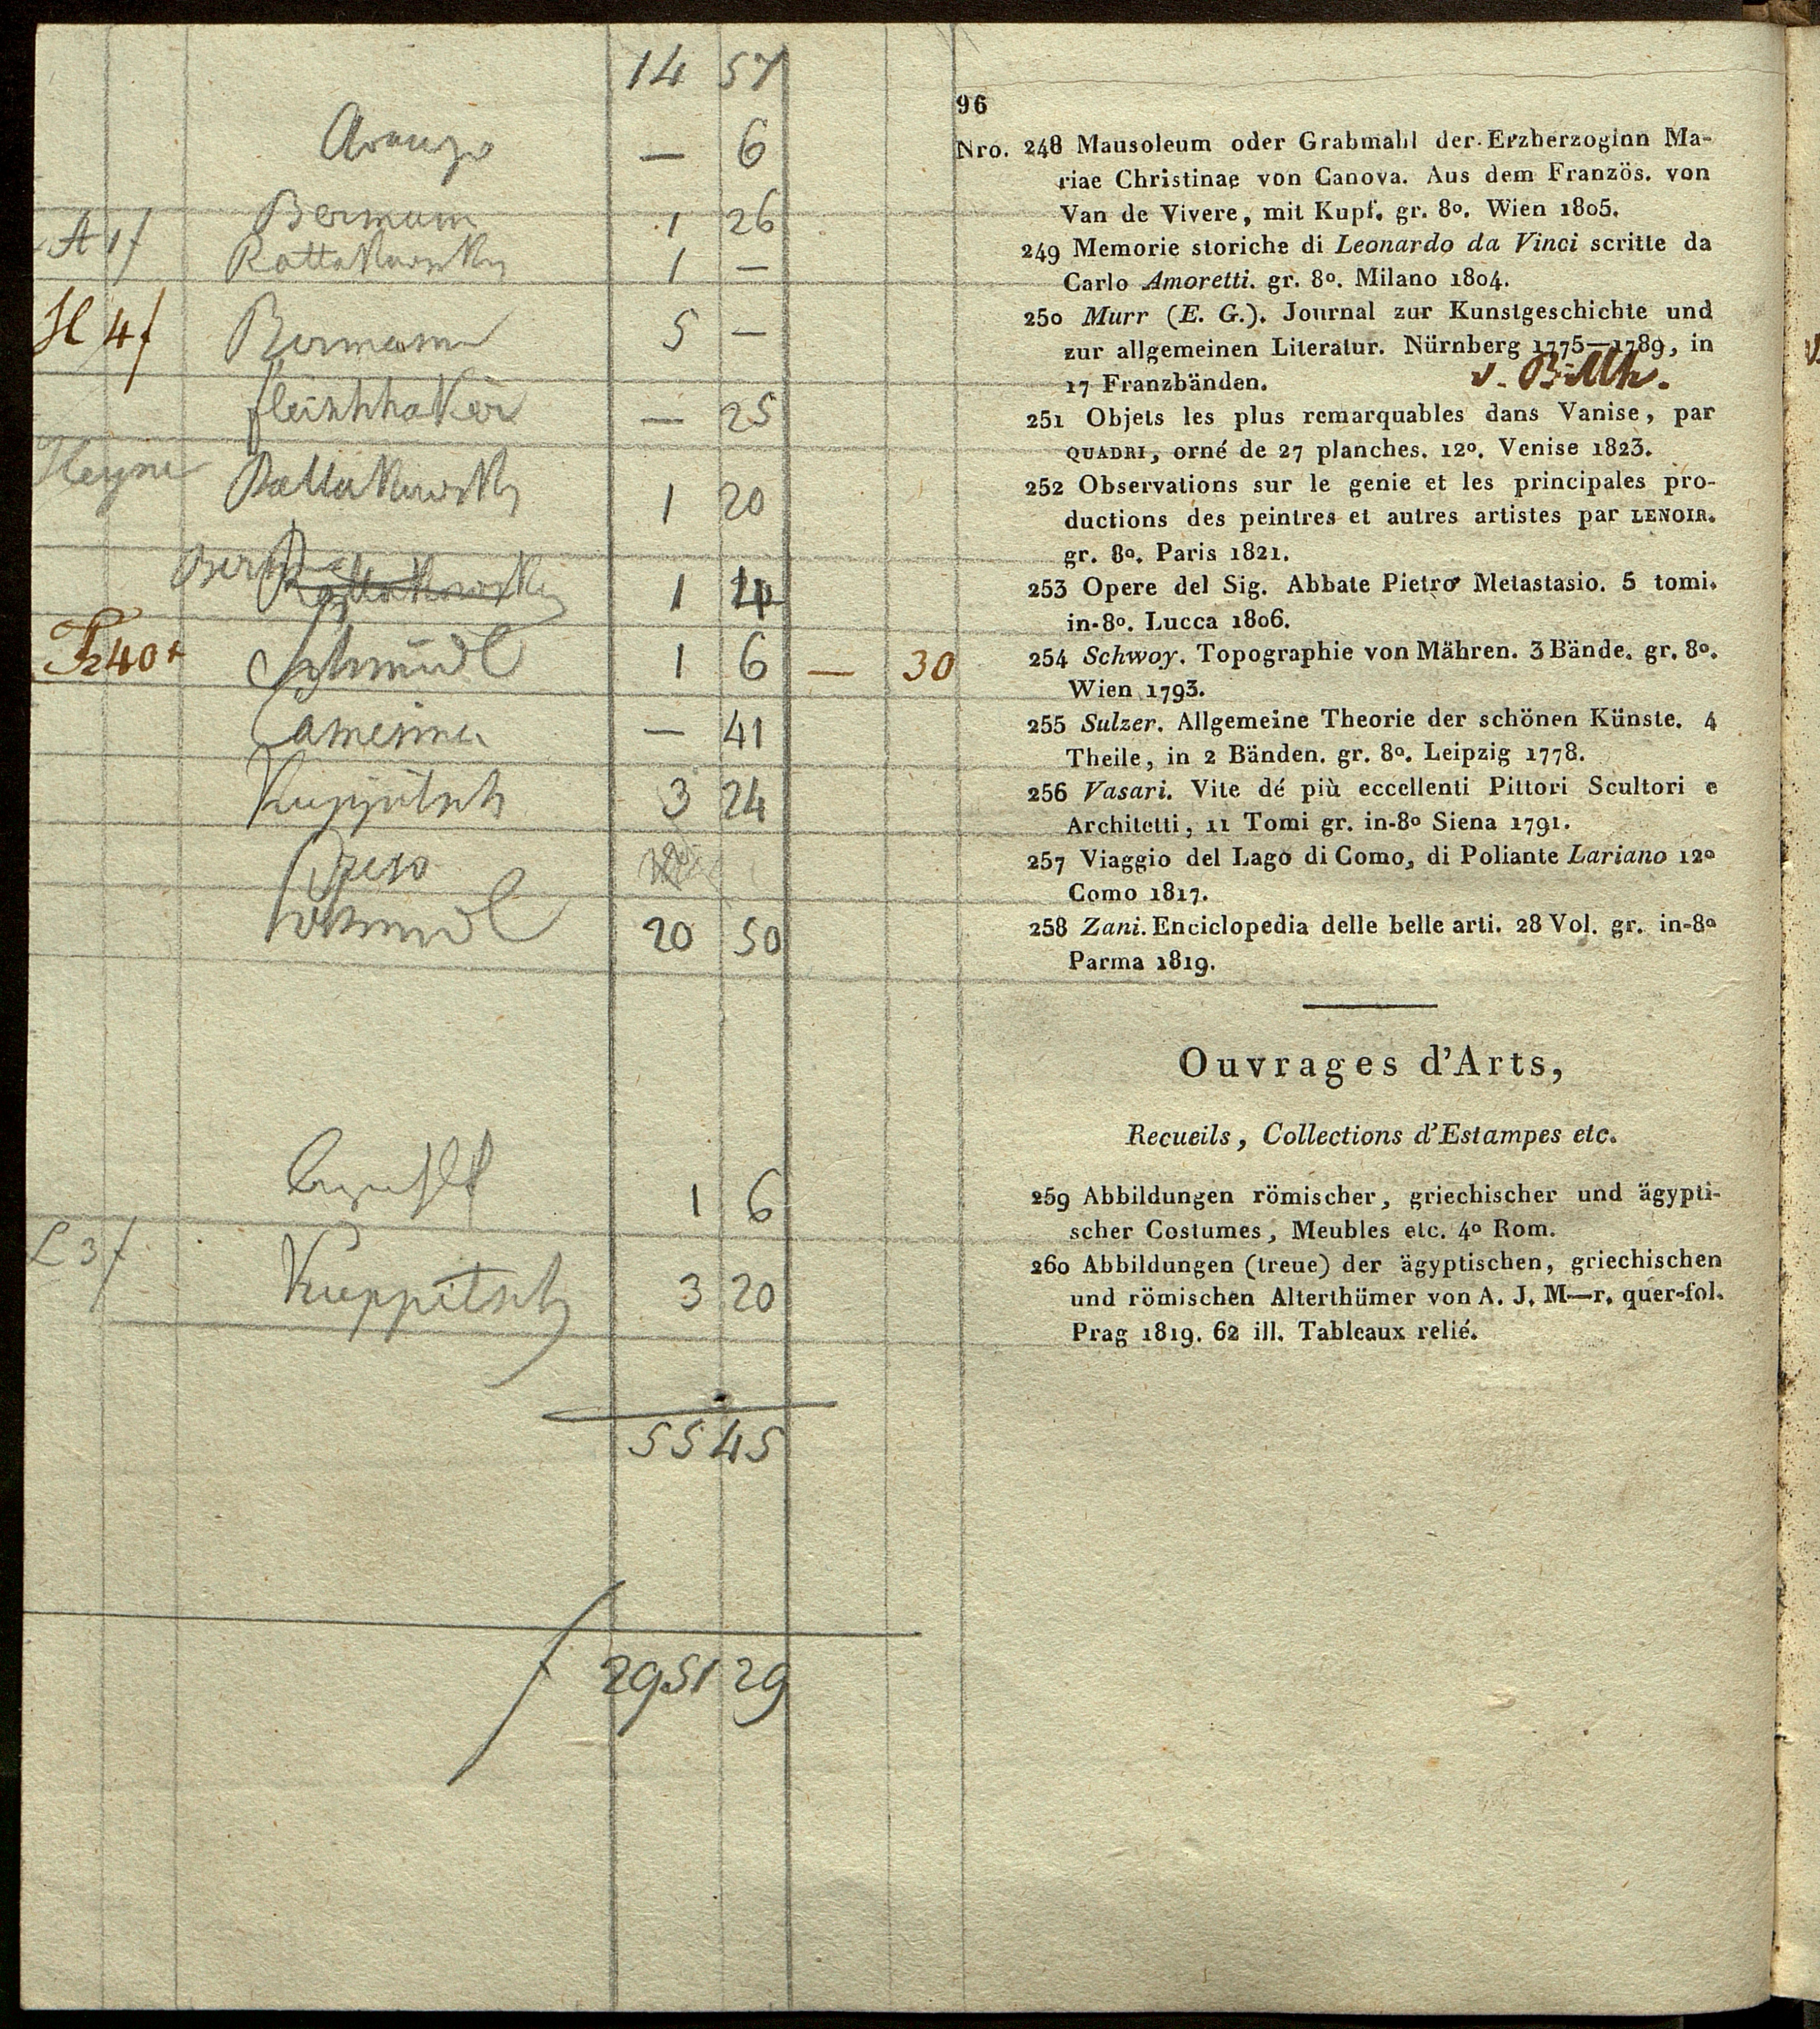 14 57
— 6
A 1 f Bermann 1 26
Rottakowsky 1 —
H 4 f Bermann 5 —
— 25
Heyne Rottakowsky 1 20
Berm Rottakowsky 1 4
40 Schmidl 1 6 — 30
— 41
Kuppitsch 3 24
20 50
1 6
L 3 f Kuppitsch 3 20
55 45
f 2951 29
96
Nro. 248 Mausoleum oder Grabmahl der Erzherzoginn Ma-
riae Christinae von Canova. Aus dem Französ. von
Van de Vivere, mit Kupf. gr. 8o. Wien 1805.
249 Memorie storiche di Leonardo da Vinci scritte da
Carlo Amoretti. gr. 8o. Milano 1804.
250 Murr (E. G.). Journal zur Kunstgeschichte und
zur allgemeinen Literatur. Nürnberg 1775—1789, in
17 Franzbänden.
251 Objets les plus remarquables dans Vanise, par
QUADRI, orné de 27 planches. 12o. Venise 1823.
252 Observations sur le genie et les principales pro-
ductions des peintres et autres artistes par LENOIR.
gr. 8o. Paris 1821.
253 Opere del Sig. Abbate Pietro Metastasio. 5 tomi.
in-8o. Lucca 1806.
254 Schwoy. Topographie von Mähren. 3 Bände. gr. 8o.
Wien 1793.
255 Sulzer. Allgemeine Theorie der schönen Künste. 4
Theile, in 2 Bänden. gr. 8o. Leipzig 1778.
256 Vasari. Vite dé più eccellenti Pittori Scultori e
Architetti, 11 Tomi gr. in-8o Siena 1791.
257 Viaggio del Lago di Como, di Poliante Lariano 12o
Como 1817.
258 Zani. Enciclopedia delle belle arti. 28 Vol. gr. in-8o
Parma 1819.
Ouvrages d'Arts,
Recueils, Collections d'Estampes etc.
259 Abbildungen römischer, griechischer und ägypti-
scher Costumes, Meubles etc. 4o Rom.
260 Abbildungen (treue) der ägyptischen, griechischen
und römischen Alterthümer von A. J. M—r. quer-fol.
Prag 1819. 62 ill. Tableaux relié.